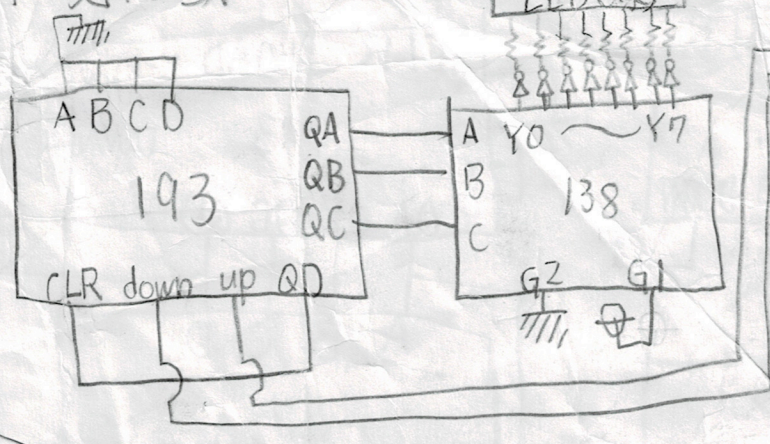 A B C D
193
QA
QB
QC
CLR down up QD
A Y0 ~ Y7
B
C
138
G2 G1